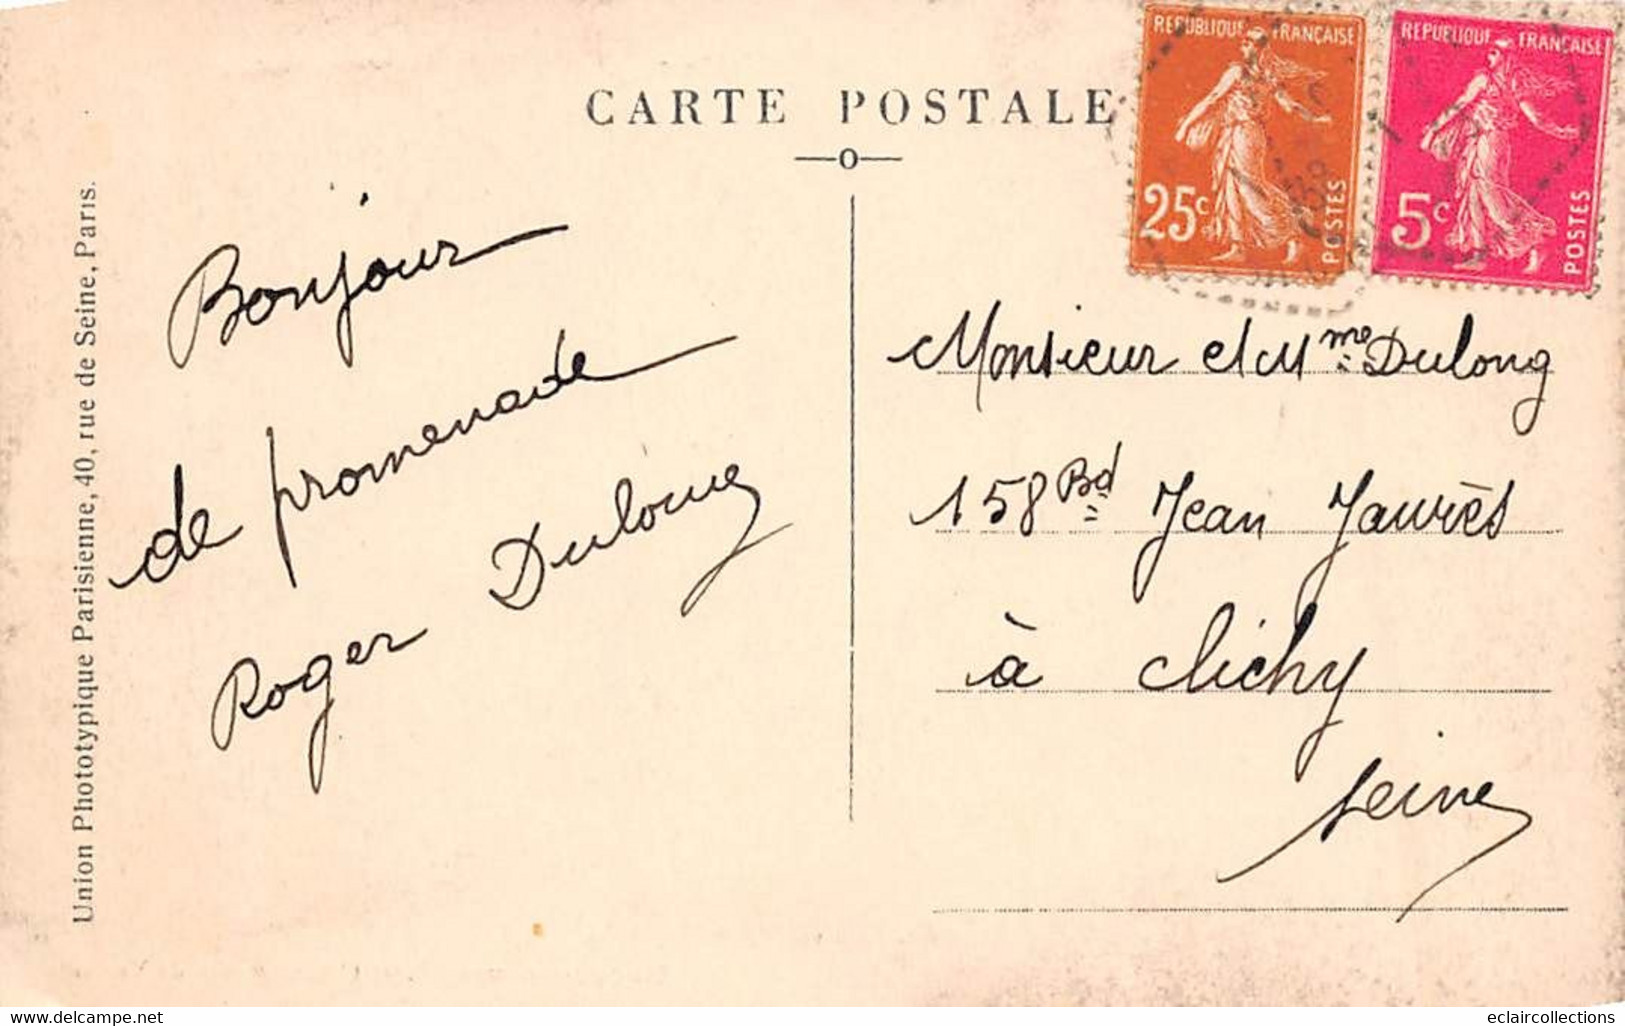 CARTE POSTALE
REPUBLIQUE FRANÇAISE
25c
POSTES
REPUBLIQUE FRANÇAISE
5c
POSTES
Union Phototypique Parisienne, 40, rue de Seine, Paris.
Bonjour
de promenade
Roger Dulong
Monsieur et Mme Dulong
158 Bd Jean Jaurès
à Clichy
Seine
www.delcampe.net
eclaircollections